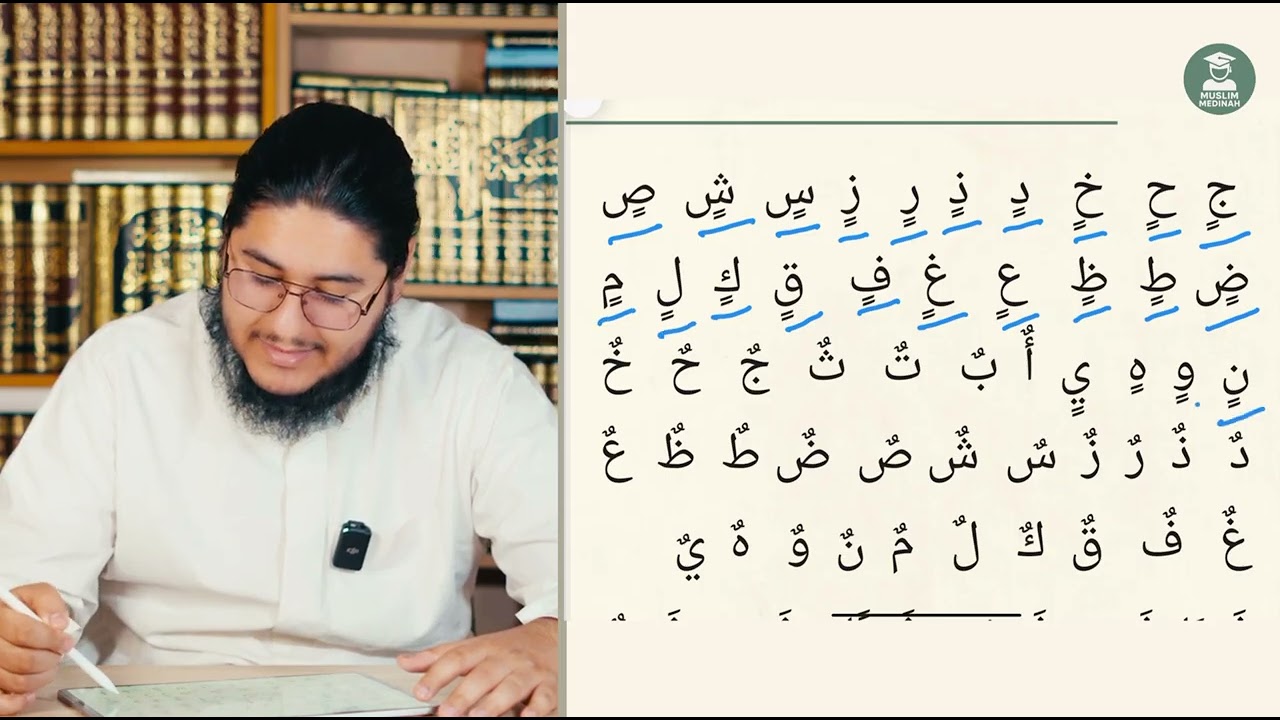 MUSLIM
MEDINAH
جٍ حٍ خٍ دٍ ذٍ رٍ زٍ سٍ شٍ صٍ
ضٍ طٍ ظٍ عٍ غٍ فٍ قٍ كٍ لٍ مٍ
نٍ وٍ هٍ يٍ أٌ بٌ تٌ ثٌ جٌ حٌ خٌ
دٌ ذٌ رٌ زٌ سٌ شٌ صٌ ضٌ طٌ ظٌ عٌ
غٌ فٌ قٌ كٌ لٌ مٌ نٌ وٌ هٌ يٌ